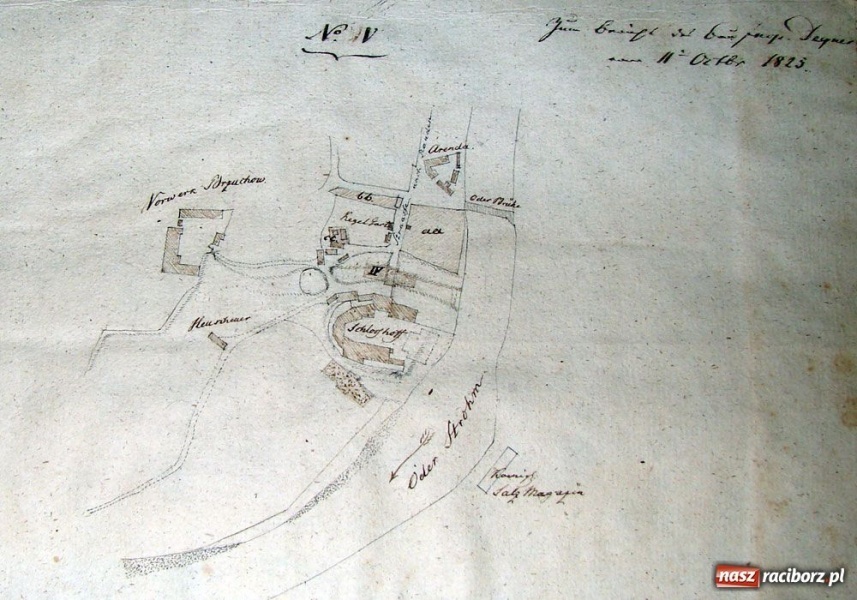 No IV
Zum Bericht des Bau Insp. Degner
vom 11t Octbr 1825.
Arenda
Vorwerk Brzuchow
bb.
Oder Brücke
Kegel
aa
IV
Heuscheuer
Schloßhoff
Oder Strohm
Salz Magazin
nasz raciborz.pl